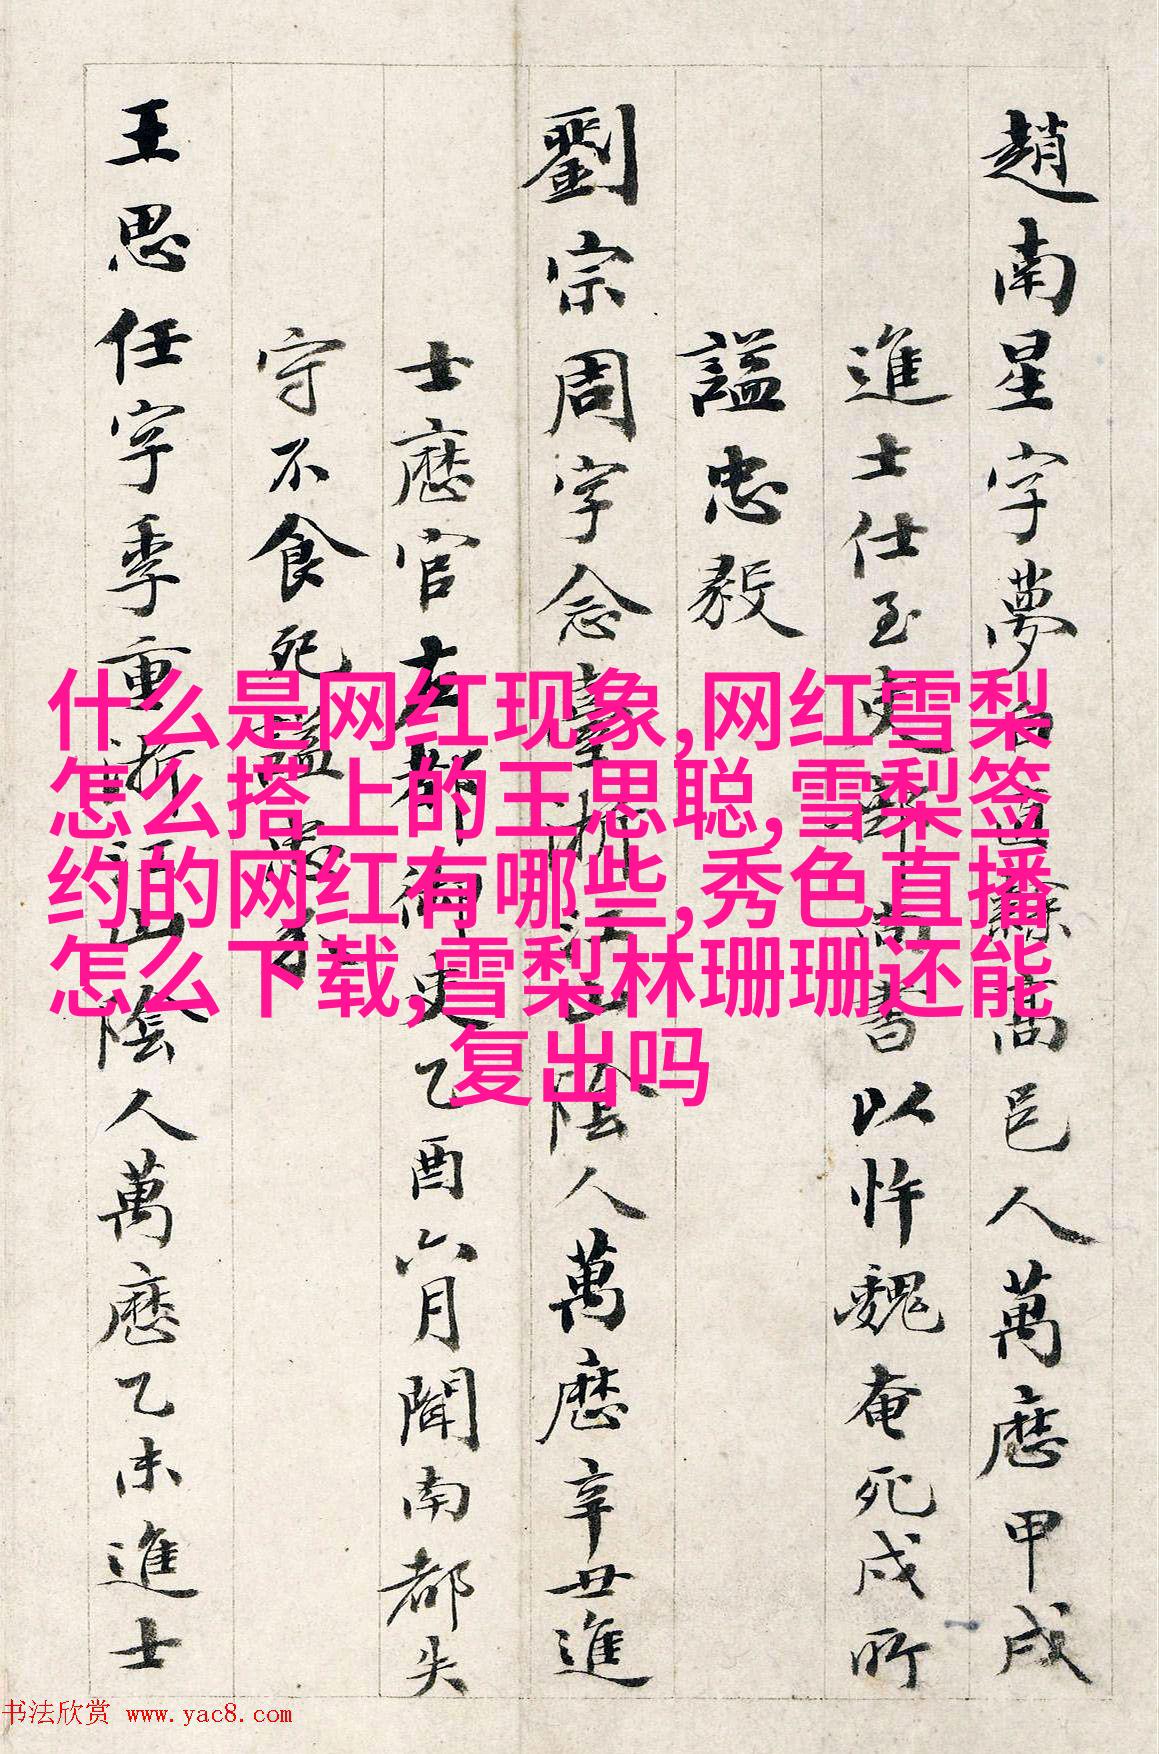 趙南星字夢白直隸高邑人萬厯甲戌
進士仕至吏部尚書以忤魏奄死戍所
諡忠毅
劉宗周字念臺浙江山陰人萬厯辛丑進
士厯官左都御史乙酉六月聞南都失
守不食死諡忠介
王思任字季重浙江山陰人萬厯乙未進士
什么是网红现象,网红雪梨
怎么搭上的王思聪,雪梨签
约的网红有哪些,秀色直播
怎么下载,雪梨林珊珊还能
复出吗
书法欣赏 www.yac8.com